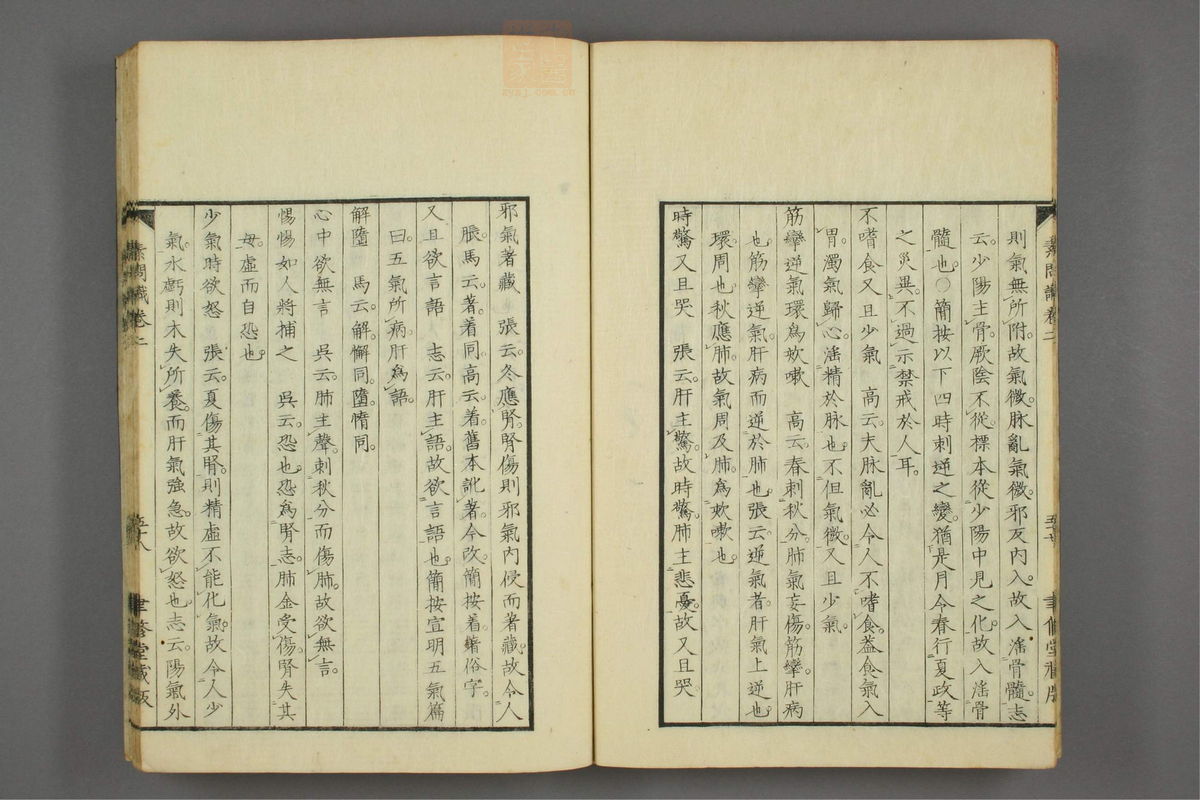 則氣無所附。故氣微。脉亂氣微。邪反內入。故入淫骨髓。志
云。少陽主骨。厥陰不從標本。從少陽中見之化。故入淫骨
髓也。○簡按以下四時刺逆之變。猶是月令春行夏政等
之災異。不過示禁戒於人耳。
不嗜食又且少氣　高云。夫脉亂必令人不嗜食。蓋食氣入
胃。濁氣歸心。淫精於脉也。不但氣微。又且少氣。
筋攣逆氣環爲欬嗽　高云。春刺秋分。肺氣妄傷。筋攣肝病
也。筋攣逆氣。肝病而逆於肺也。張云。逆氣者。肝氣上逆也。
環。周也。秋應肺。故氣周及肺。爲欬嗽也。
時驚又且哭　張云。肝主驚。故時驚。肺主悲憂。故又且哭。
素問識卷二
五十七
聿修堂藏版
邪氣著藏　張云。冬應腎。腎傷則邪氣內侵而著藏。故令人
脹。馬云。著。着同。高云。着舊本訛著。今改。簡按着。著俗字。
又且欲言語　志云。肝主語。故欲言語也。簡按宣明五氣篇
曰。五氣所病。肝爲語。
解墮　馬云。解。懈同。墮。惰同。
心中欲無言　吳云。肺主聲。刺秋分而傷肺。故欲無言。
惕惕如人將捕之　吳云。恐也。恐爲腎志。肺金受傷。腎失其
母。虛而自恐也。
少氣時欲怒　張云。夏傷其腎。則精虛不能化氣。故令人少
氣。水虧則木失所養。而肝氣強急。故欲怒也。志云。陽氣外
素問識卷二
五十八
聿修堂藏版